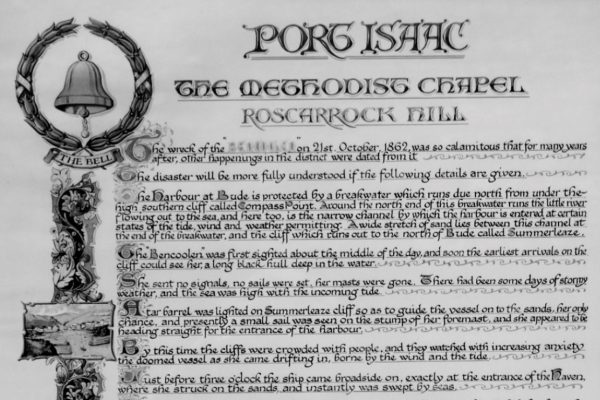 PORT ISAAC
THE METHODIST CHAPEL
ROSCARROCK HILL
THE BELL
The wreck of the " " on 21st. October, 1862, was so calamitous that for many years
after, other happenings in the district were dated from it
The disaster will be more fully understood if the following details are given.
The Harbour at Bude is protected by a breakwater which runs due north from under the
high southern cliff called Compass Point. Around the north end of this breakwater runs the little river
flowing out to the sea, and here too, is the narrow channel by which the harbour is entered at certain
states of the tide, wind and weather permitting. A wide stretch of sand lies between this channel at
the end of the breakwater, and the cliff which runs out to the north of Bude called Summerleaze.
The Bencoolen was first sighted about the middle of the day, and soon the earliest arrivals on the
cliff could see her, a long black hull deep in the water.
She sent no signals, no sails were set, her masts were gone. There had been some days of stormy
weather, and the sea was high with the incoming tide.
A tar barrel was lighted on Summerleaze cliff so as to guide the vessel on to the sands, her only
chance, and presently a small sail was seen on the stump of her foremast, and she appeared to be
heading straight for the entrance of the harbour.
By this time the cliffs were crowded with people, and they watched with increasing anxiety
the doomed vessel as she came drifting in, borne by the wind and the tide.
Just before three o'clock the ship came broadside on, exactly at the entrance of the Haven,
where she struck on the sands, and instantly was swept by seas.